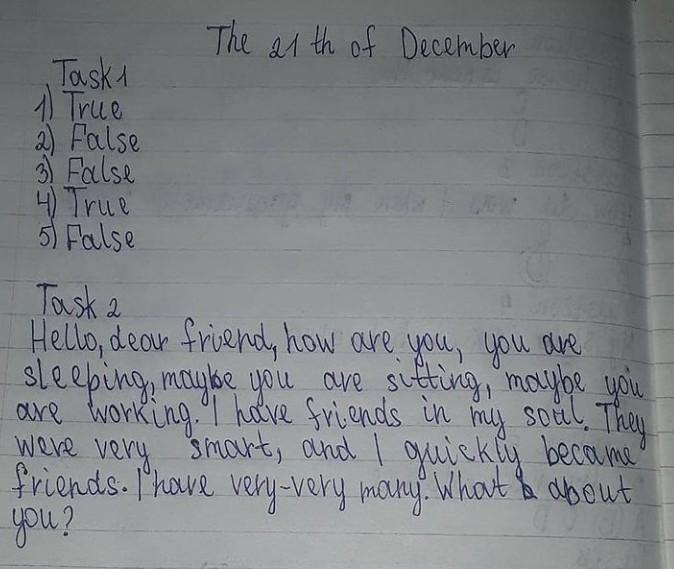 The 21 th of December
Task 1
1) True
2) False
3) False
4) True
5) False
Task 2
Hello, dear friend, how are you, you are
sleeping, maybe you are sitting, maybe you
are working. I have friends in my soul. They
were very smart, and I quickly became
friends. I have very-very many. What about
you?